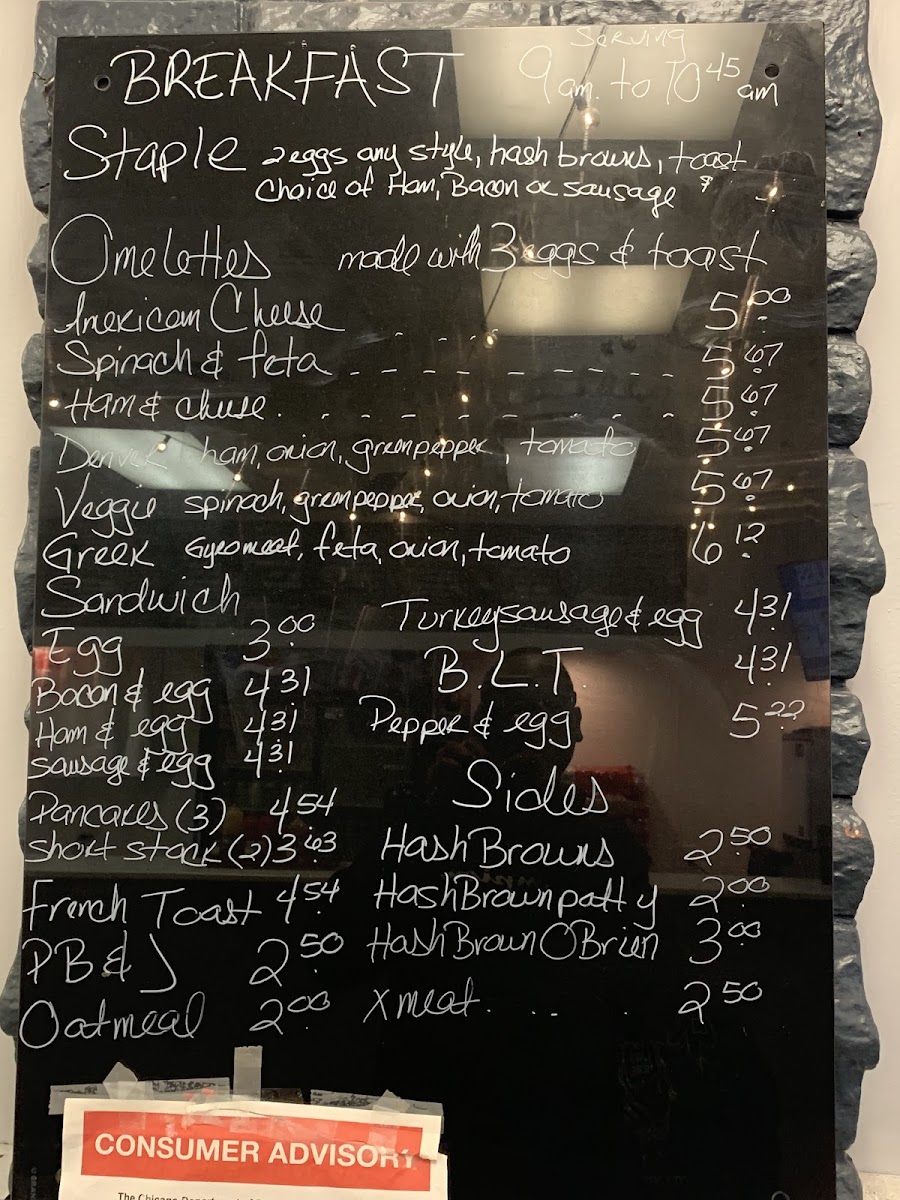 Serving
BREAKFAST 9am. to 10 45 am
Staple 2eggs any style, hash browns, toast
Choice of Ham, Bacon or sausage $
Omelettes made with 3 eggs & toast
American Cheese 5.00
Spinach & feta 5.67
Ham & cheese 5.67
Denver ham, onion, greenpepper, tomato 5.67
Veggie spinach, greenpepper, onion, tomato 5.67
Greek Gyromeat, feta, onion, tomato 6.12
Sandwich
Egg 3.00
Bacon & egg 4.31
Ham & egg 4.31
Sausage & egg 4.31
Pancakes (3) 4.54
Short stack (2) 3.63
French Toast 4.54
PB & J 2.50
Oatmeal 2.00
Turkeysausage & egg 4.31
B.L.T. 4.31
Pepper & egg 5.22
Sides
HashBrowns 2.50
HashBrownpatty 2.00
HashBrownOBrien 3.00
Xmeat 2.50
CONSUMER ADVISORY
The Chicago